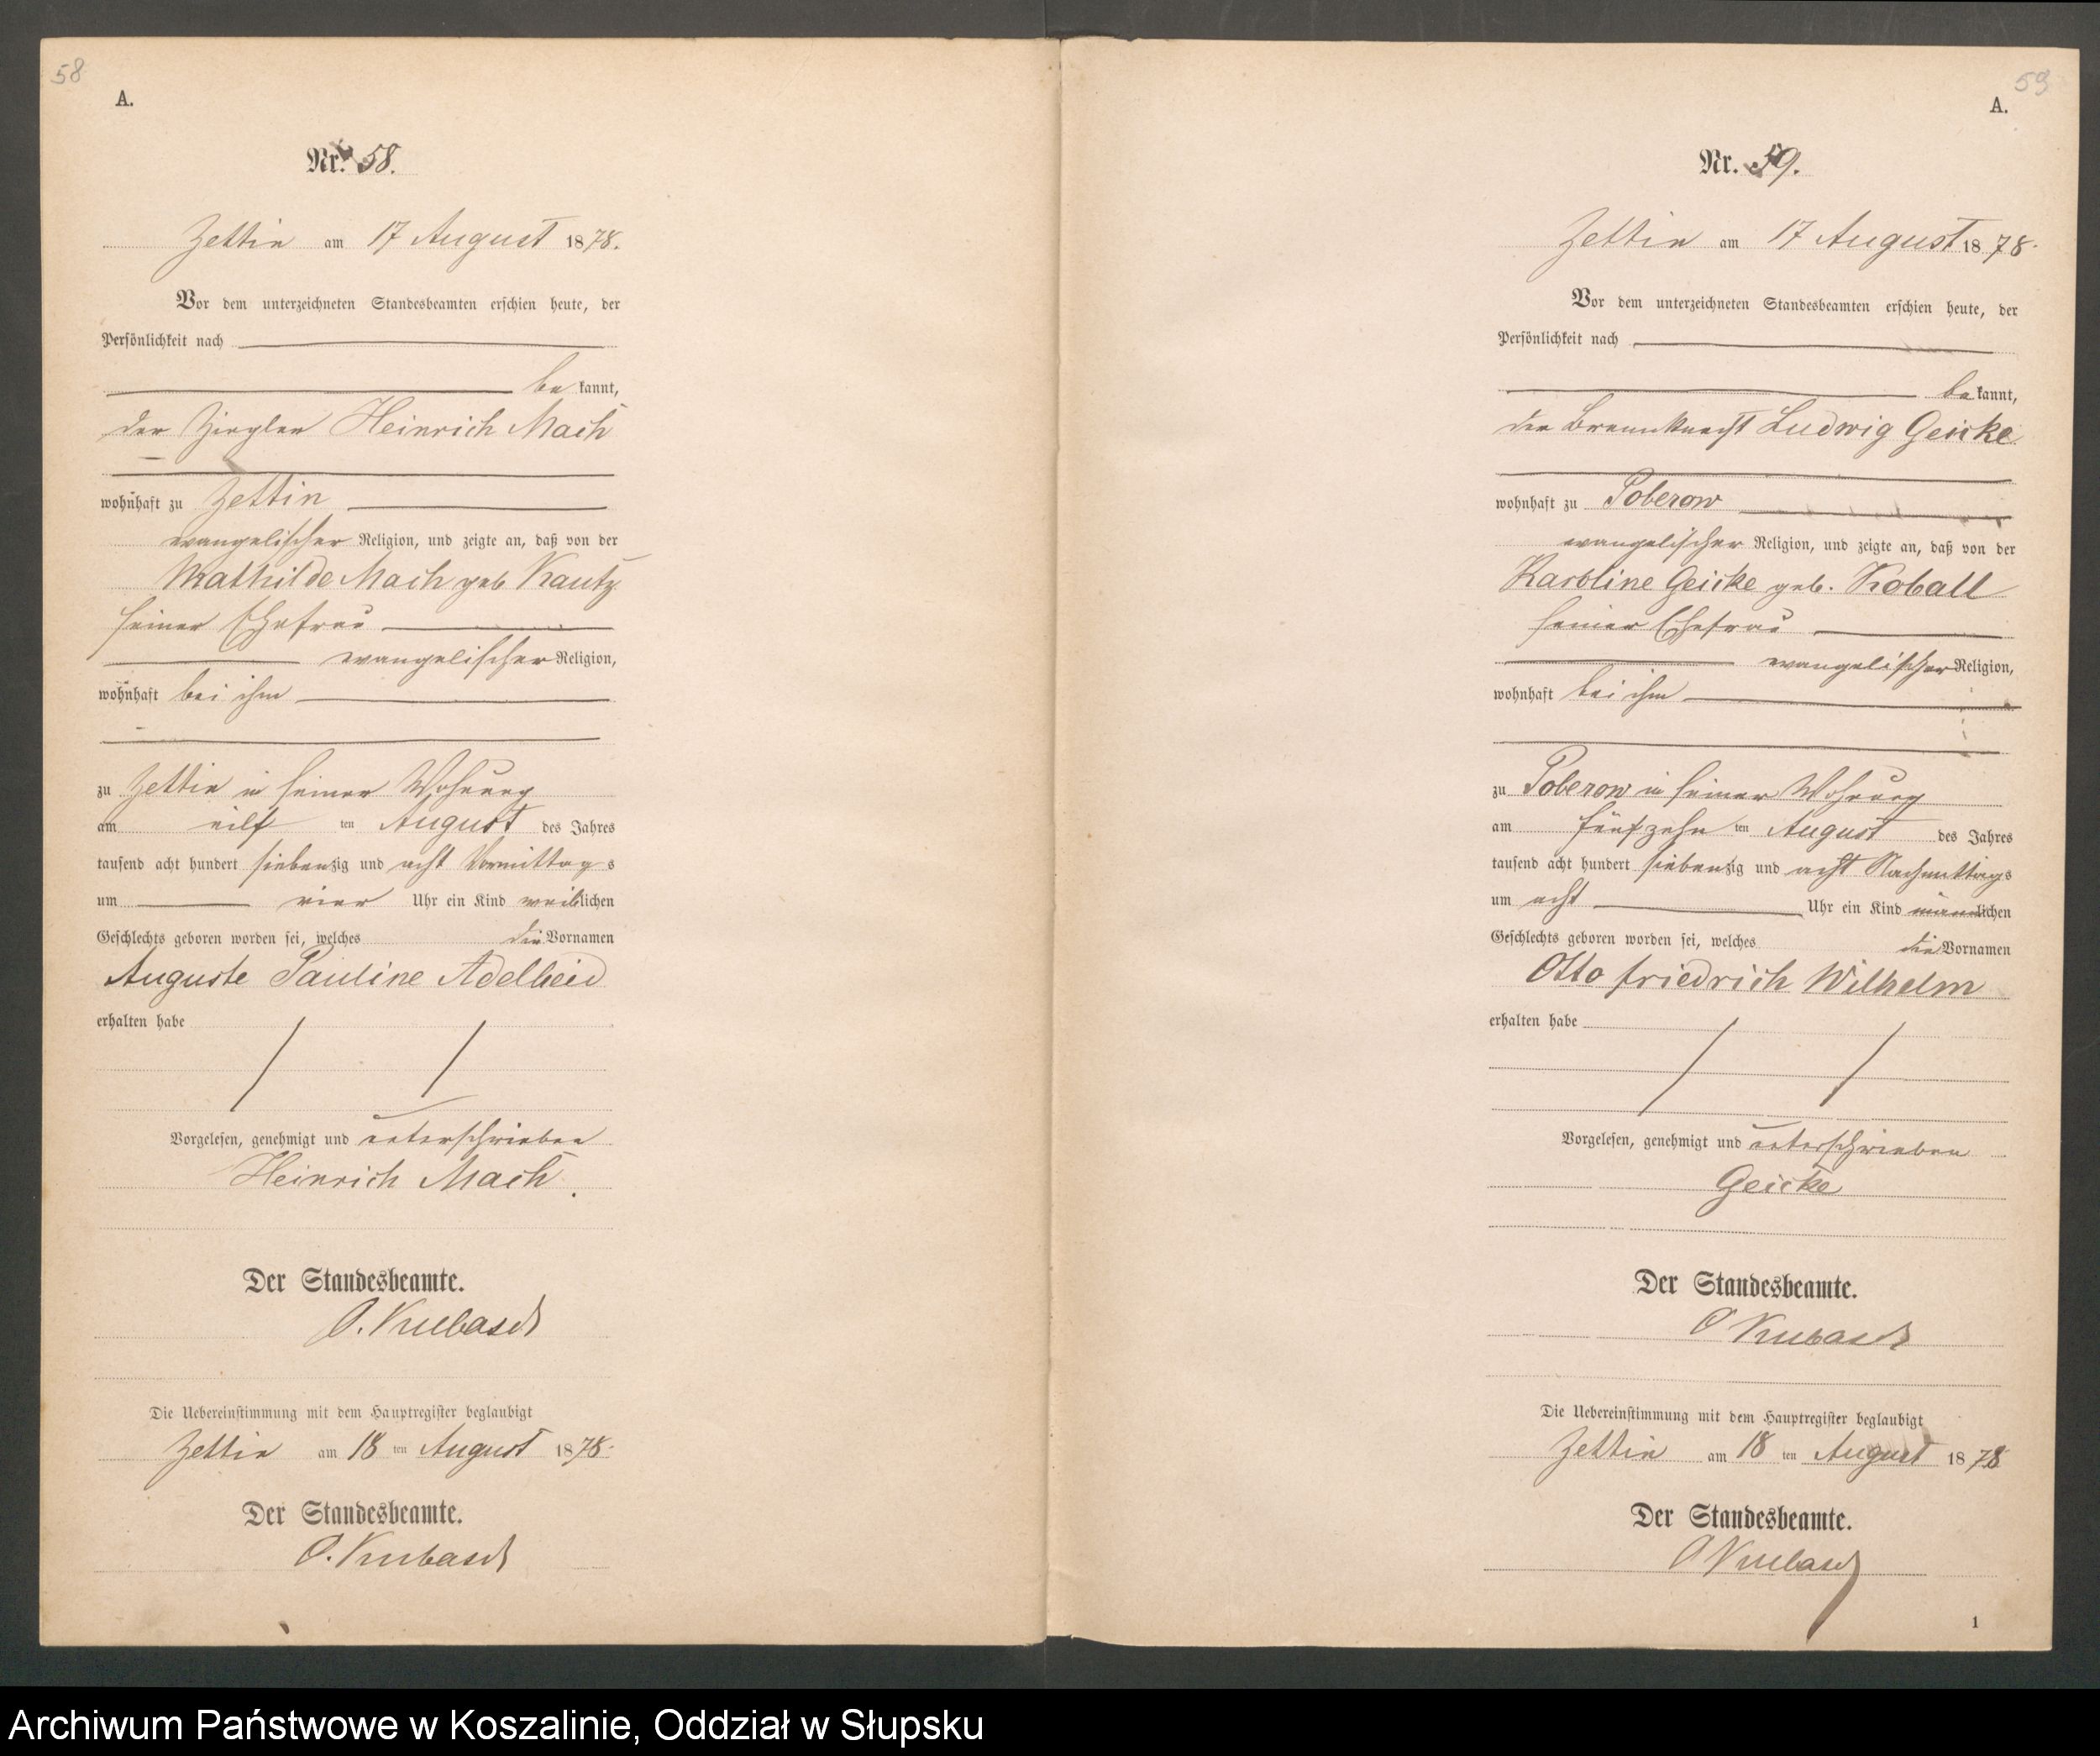 58
A.
Nr. 58.
Zettin am 17 August 1878.
Vor dem unterzeichneten Standesbeamten erschien heute, der
Persönlichkeit nach
be kannt,
der Ziegler Heinrich Mach
wohnhaft zu Zettin
evangelischer Religion, und zeigte an, daß von der
Mathilde Mach geb Kautz
seiner Ehefrau
evangelischer Religion,
wohnhaft bei ihm
zu Zettin in seiner Wohnung
am eilf ten August des Jahres
tausend acht hundert siebenzig und acht Vormittags
um vier Uhr ein Kind weiblichen
Geschlechts geboren worden sei, welches die Vornamen
Auguste Pauline Adelheid
erhalten habe
Vorgelesen, genehmigt und unterschrieben
Heinrich Mach.
Der Standesbeamte.
O. Kubasch
Die Uebereinstimmung mit dem Hauptregister beglaubigt
Zettin am 18 ten August 1878.
Der Standesbeamte.
O. Kubasch
59
A.
Nr. 59.
Zettin am 17 August 1878.
Vor dem unterzeichneten Standesbeamten erschien heute, der
Persönlichkeit nach
be kannt,
der Brennknecht Ludwig Geicke
wohnhaft zu Poberow
evangelischer Religion, und zeigte an, daß von der
Karoline Geicke geb. Koball
seiner Ehefrau
evangelischer Religion,
wohnhaft bei ihm
zu Poberow in seiner Wohnung
am fünfzehn ten August des Jahres
tausend acht hundert siebenzig und acht Nachmittags
um acht Uhr ein Kind männlichen
Geschlechts geboren worden sei, welches die Vornamen
Otto Friedrich Wilhelm
erhalten habe
Vorgelesen, genehmigt und unterschrieben
Geicke
Der Standesbeamte.
O Kubasch
Die Uebereinstimmung mit dem Hauptregister beglaubigt
Zettin am 18 ten August 1878
Der Standesbeamte.
O Kubasch
1
Archiwum Państwowe w Koszalinie, Oddział w Słupsku